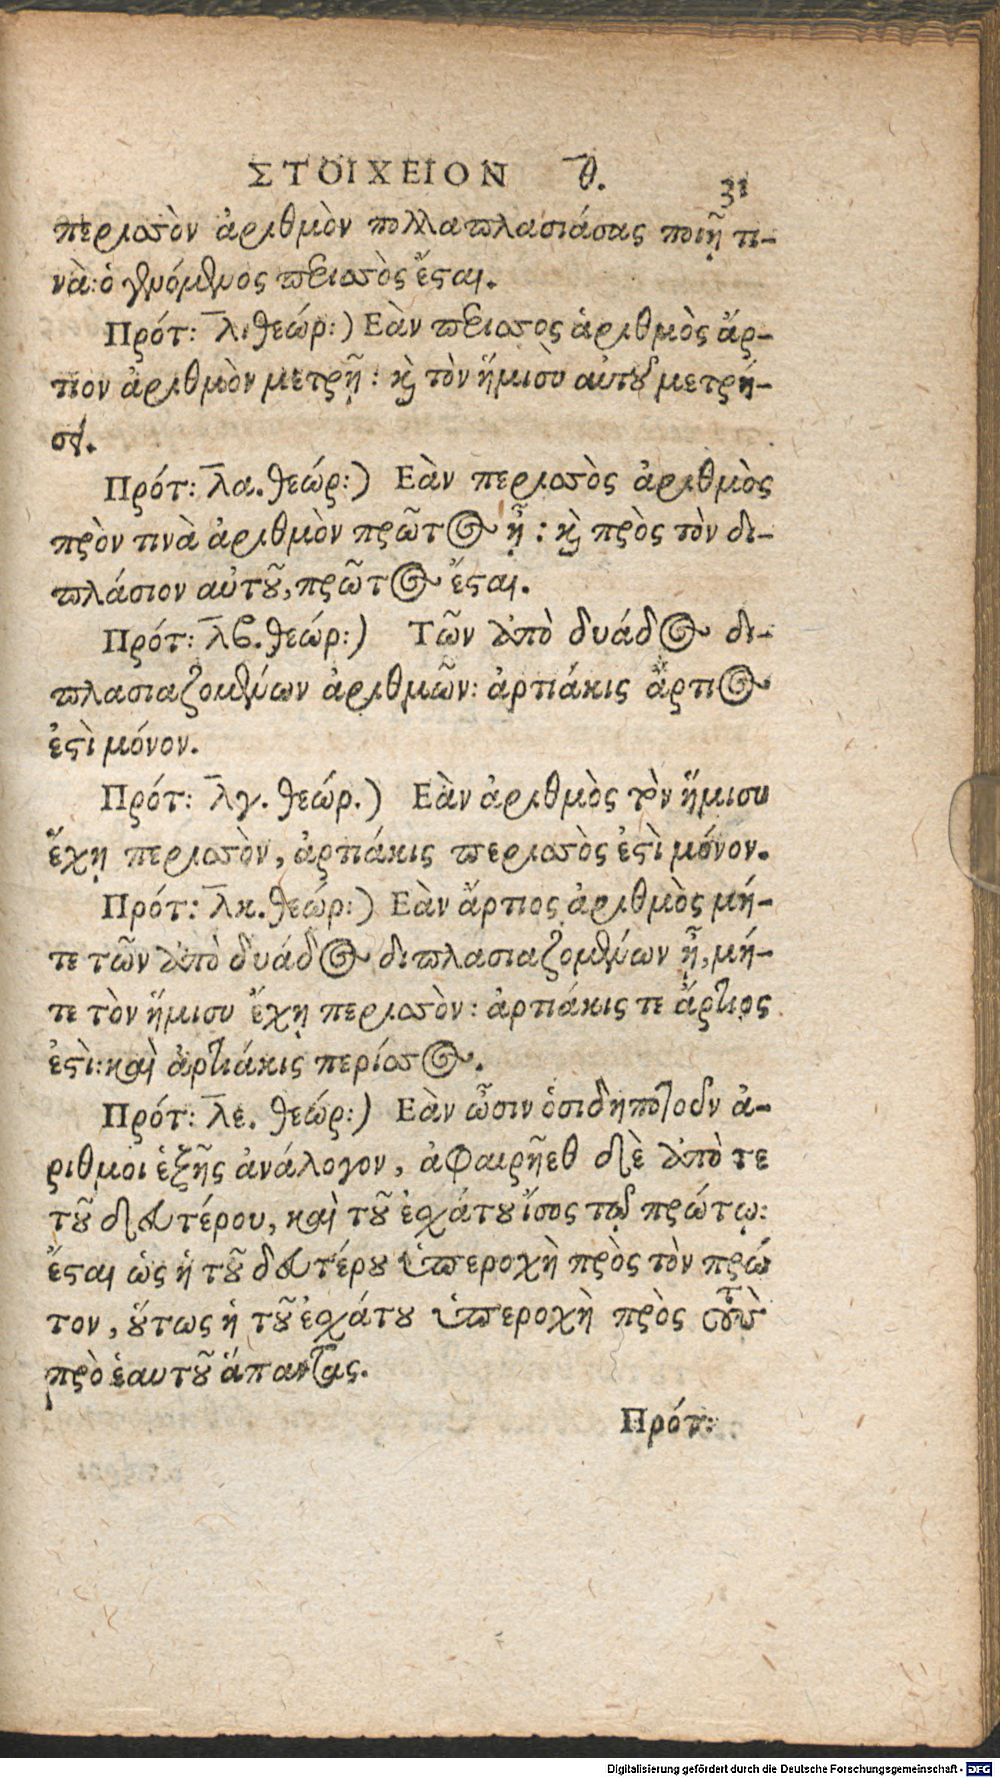 ΣΤΟΙΧΕΙΟΝ θ.
31
περισσὸν ἀριθμὸν πολλαπλασιάσας ποιῇ τι-
νὰ: ὁ γενόμενος περισσὸς ἔσται.
Πρότ: λ. θεώρ:) Εὰν περισσος ἀριθμὸς ἄρ-
τιον ἀριθμὸν μετρῇ: καὶ τὸν ἥμισυ αὐτοῦ μετρή-
σει.
Πρότ: λα. θεώρ:) Εὰν περισσὸς ἀριθμὸς
πρὸν τινὰ ἀριθμὸν πρῶτος ᾖ: καὶ πρὸς τὸν δι-
πλάσιον αὐτοῦ, πρῶτος ἔσται.
Πρότ: λϐ. θεώρ:) Τῶν ἀπὸ δυάδος δι-
πλασιαζομένων ἀριθμῶν: ἀρτιάκις ἄρτιος
ἐστὶ μόνον.
Πρότ: λγ. θεώρ.) Εὰν ἀριθμὸς τὸν ἥμισυ
ἔχῃ περισσὸν, ἀρτιάκις περισσὸς ἐστὶ μόνον.
Πρότ: λκ. θεώρ:) Εὰν ἄρτιος ἀριθμὸς μή-
τε τῶν ἀπὸ δυάδος διπλασιαζομένων ᾖ, μή-
τε τὸν ἥμισυ ἔχῃ περισσὸν: ἀρτιάκις τε ἄρτιος
ἐστὶ: καὶ ἀρτιάκις περίσσος.
Πρότ: λε. θεώρ:) Εὰν ὦσιν ὁσιδηποτοῦν ἀ-
ριθμοι ἑξῆς ἀνάλογον, ἀφαιρῆεθ δὲ ἀπὸ τε
τοῦ δευτέρου, καὶ τοῦ ἐσχάτου ἴσος τῷ πρώτῳ:
ἔσται ὡς ἡ τοῦ δευτέρου ὑπεροχὴ πρὸς τὸν πρῶ
τον, οὕτως ἡ τοῦ ἐσχάτου ὑπεροχὴ πρὸς τοὺς
πρὸ ἑαυτοῦ ἅπαντας.
Πρότ:
Digitalisierung gefördert durch die Deutsche Forschungsgemeinschaft - DFG